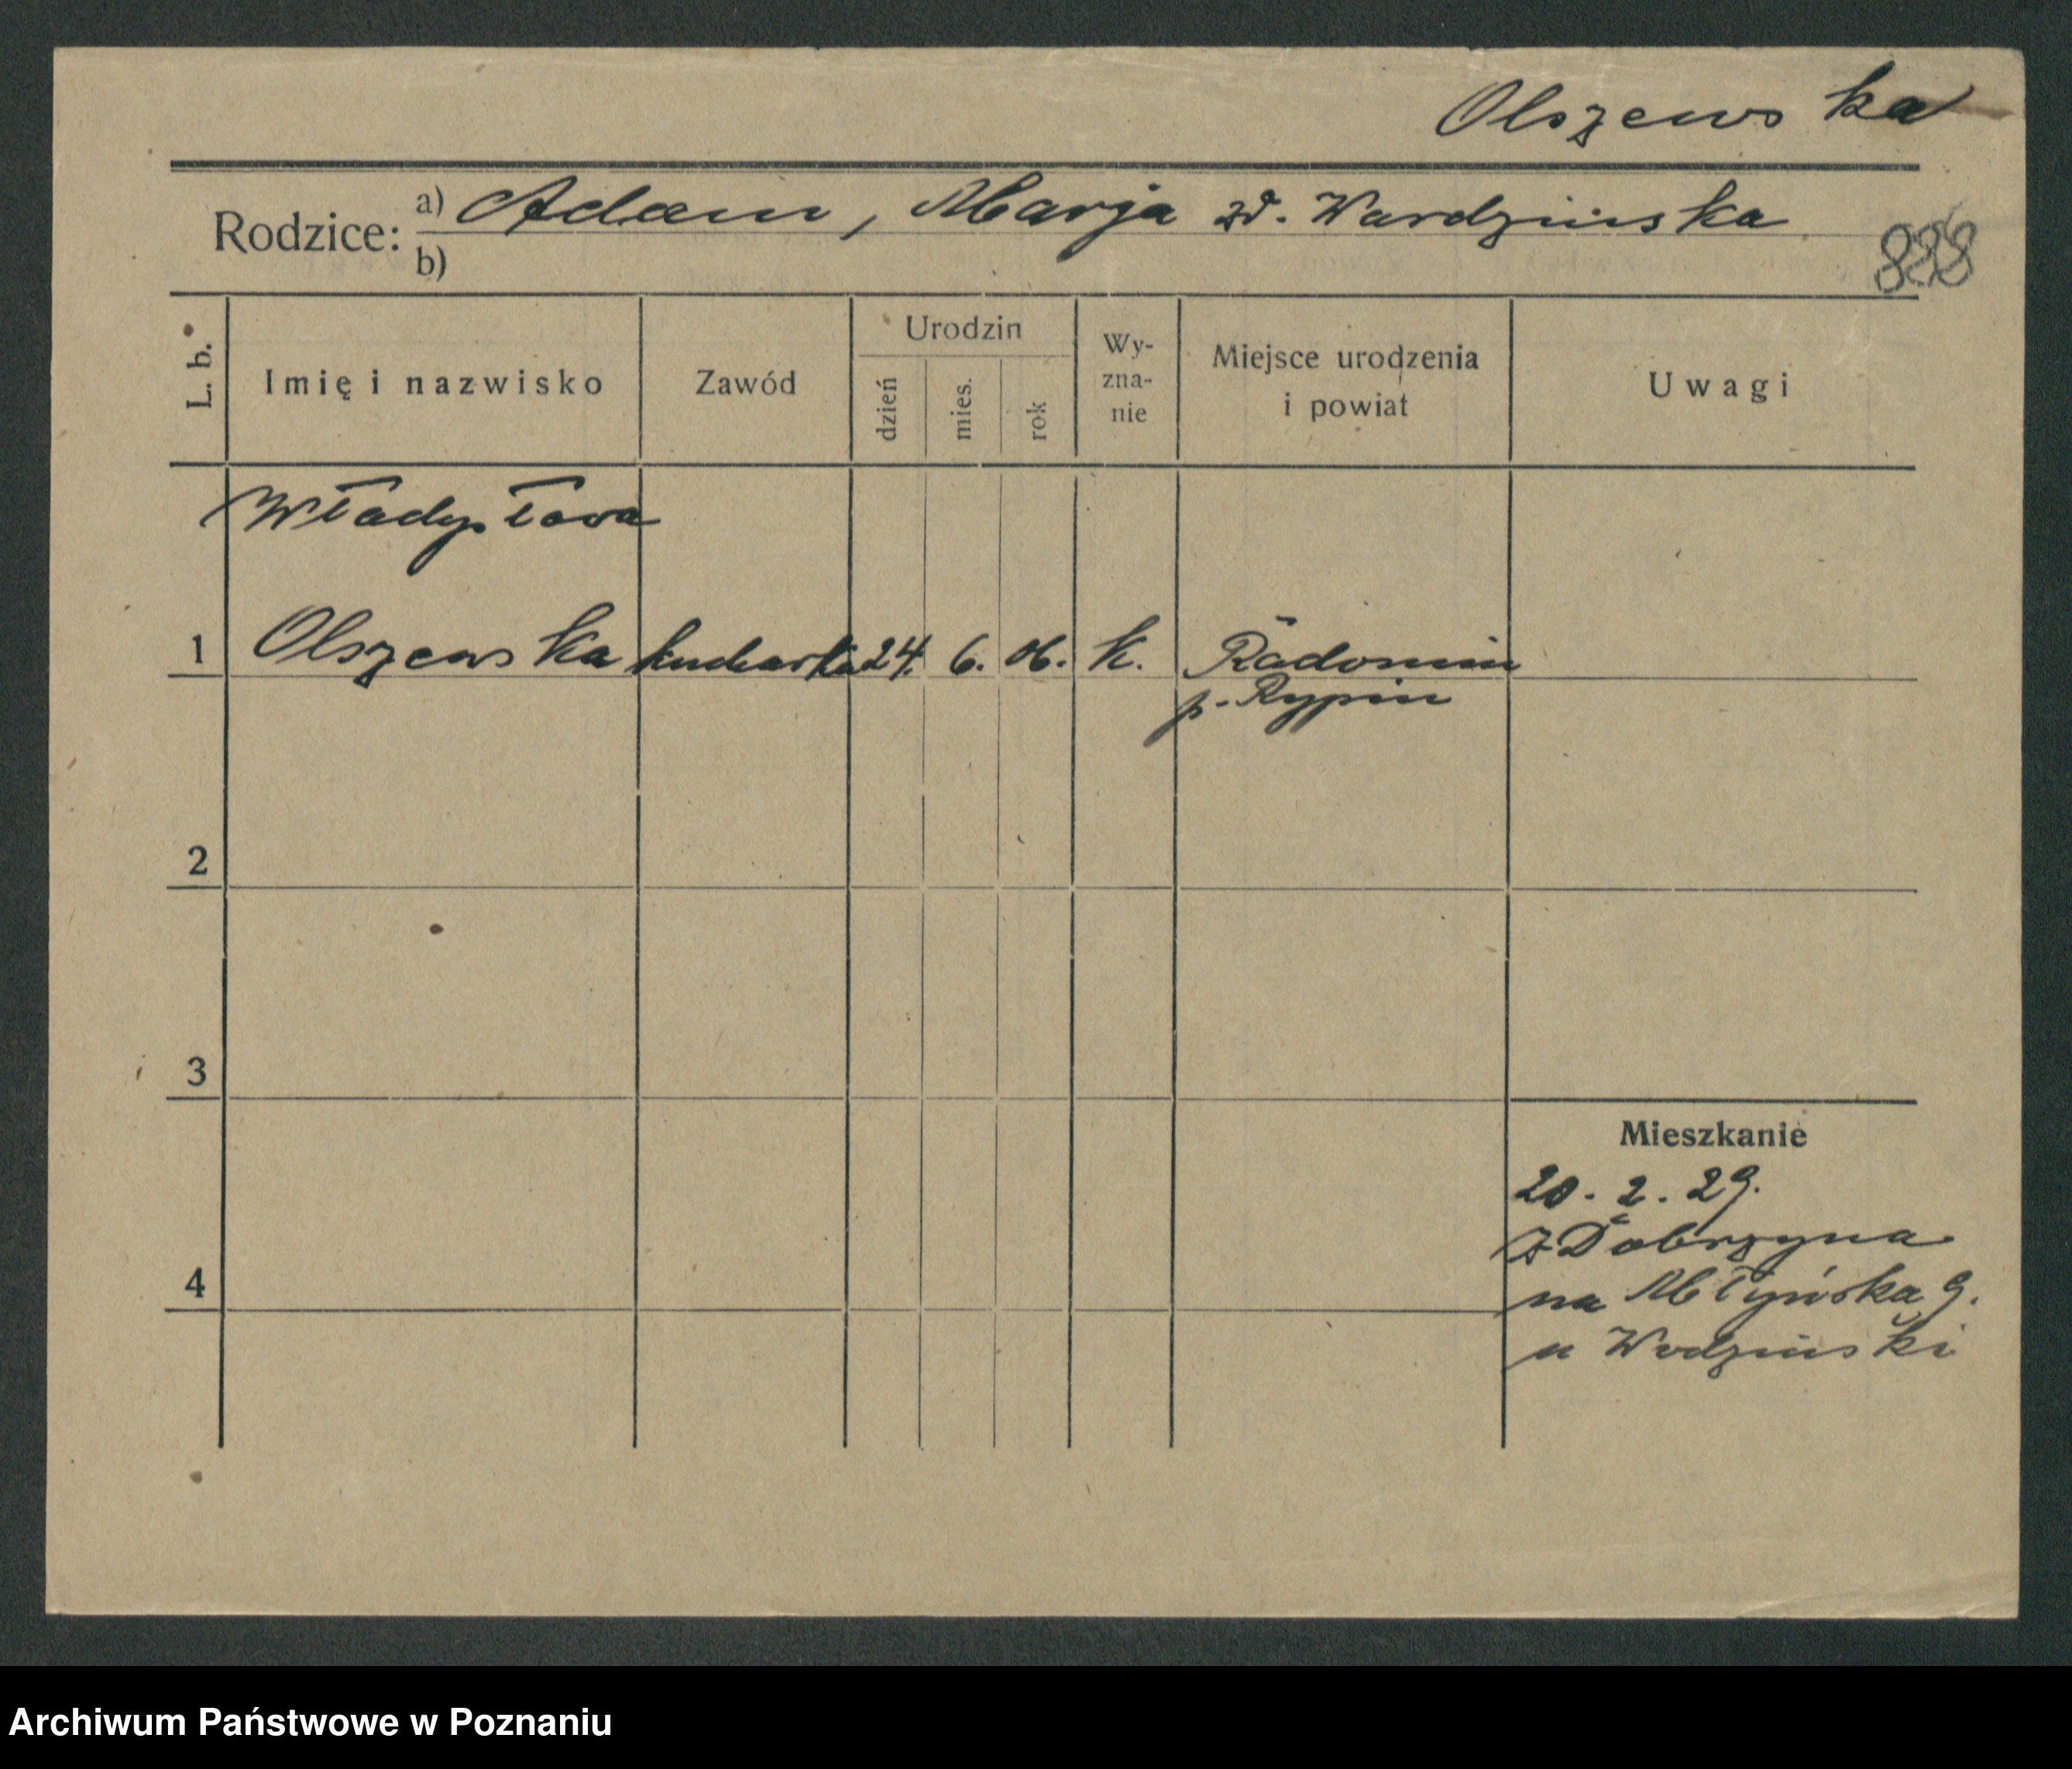 Olszewska
Rodzice: a) Adam, Marja zd. Wardzinska
b)
888
L. b.
Imię i nazwisko
Zawód
Urodzin
dzień
mies.
rok
Wy-
zna-
nie
Miejsce urodzenia
i powiat
Uwagi
Władysława
1 Olszewska kucharka 24. 6. 06. k. Radomin
p. Rypin
2
3
Mieszkanie
20. 2. 29.
z Dobrzyna
4
na Młyńska 9.
u Wodzinski
Archiwum Państwowe w Poznaniu